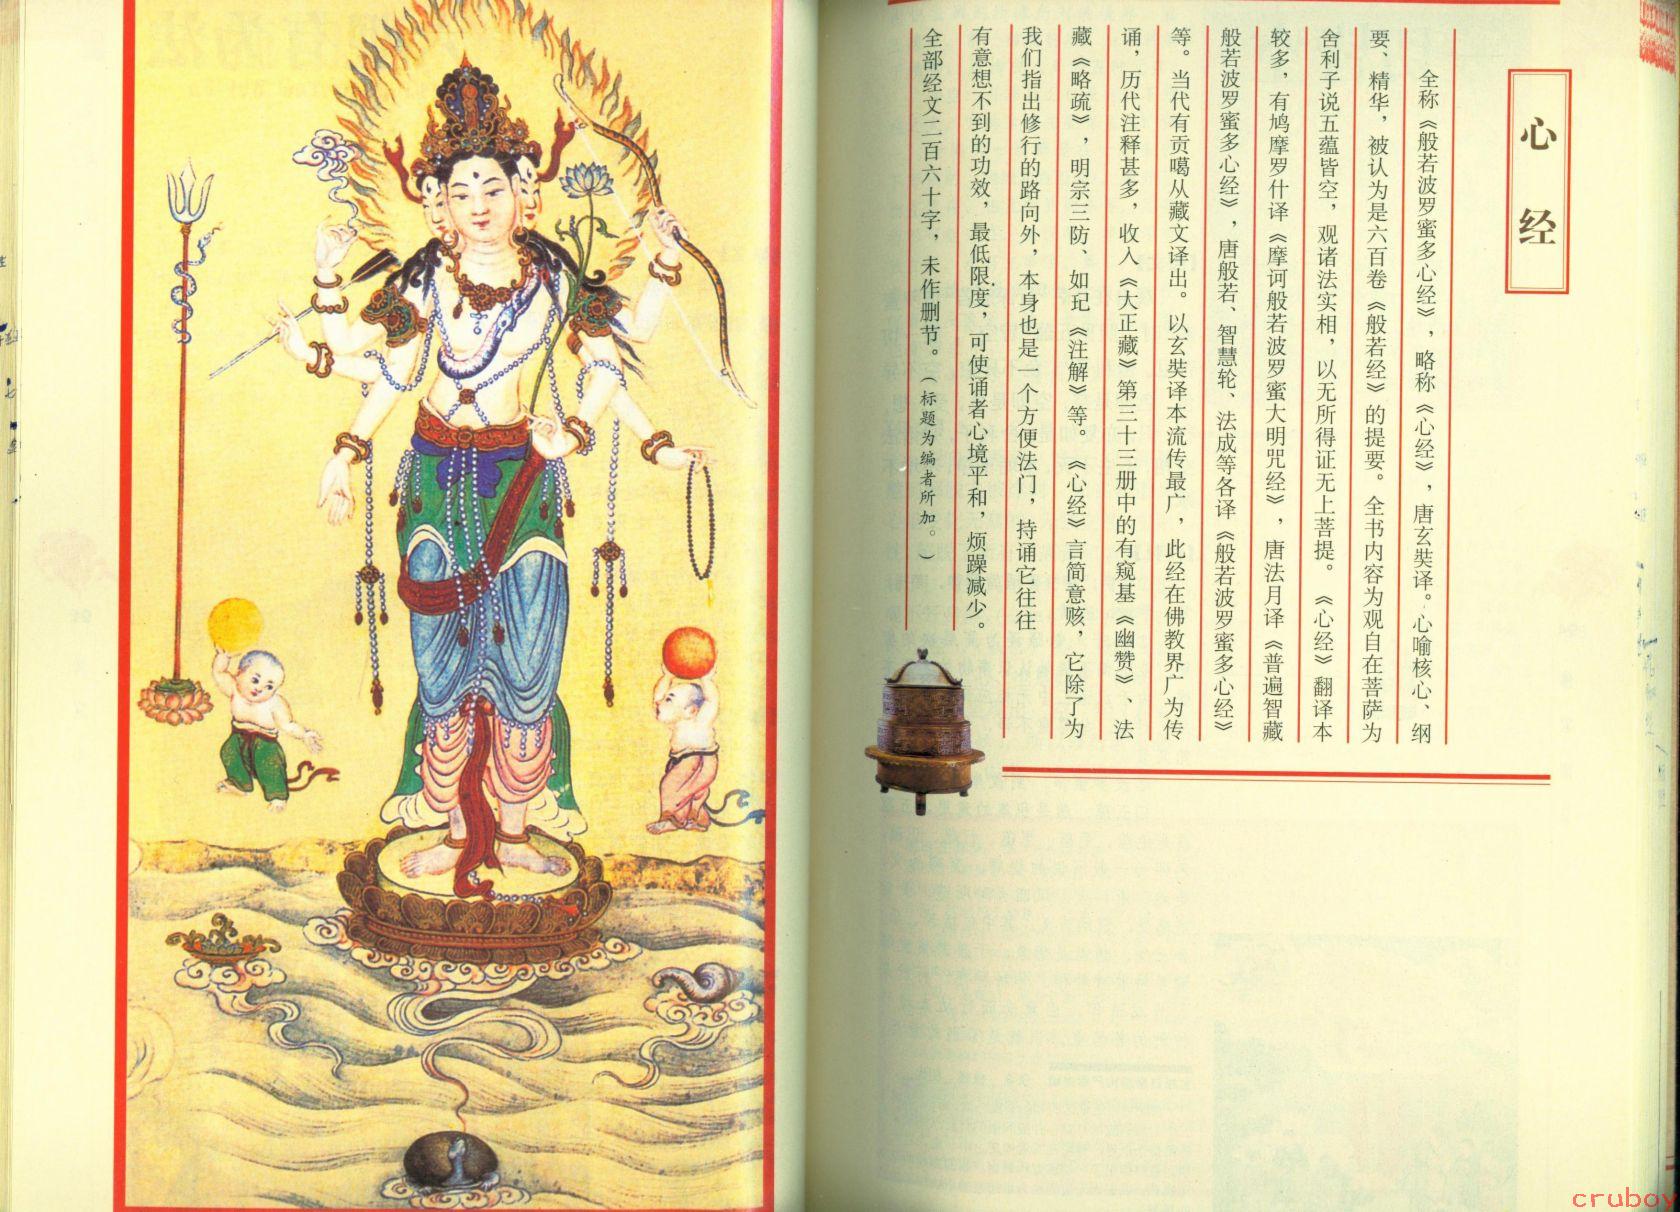 心经
全称《般若波罗蜜多心经》，略称《心经》，唐玄奘译。心喻核心、纲
要、精华，被认为是六百卷《般若经》的提要。全书内容为观自在菩萨为
舍利子说五蕴皆空，观诸法实相，以无所得证无上菩提。《心经》翻译本
较多，有鸠摩罗什译《摩诃般若波罗蜜大明咒经》，唐法月译《普遍智藏
般若波罗蜜多心经》，唐般若、智慧轮、法成等各译《般若波罗蜜多心经》
等。当代有贡噶从藏文译出。以玄奘译本流传最广，此经在佛教界广为传
诵，历代注释甚多，收入《大正藏》第三十三册中的有窥基《幽赞》、法
藏《略疏》，明宗三防、如玘《注解》等。《心经》言简意赅，它除了为
我们指出修行的路向外，本身也是一个方便法门，持诵它往往
有意想不到的功效，最低限度，可使诵者心境平和，烦躁减少。
全部经文二百六十字，未作删节。（标题为编者所加。）
cruboy